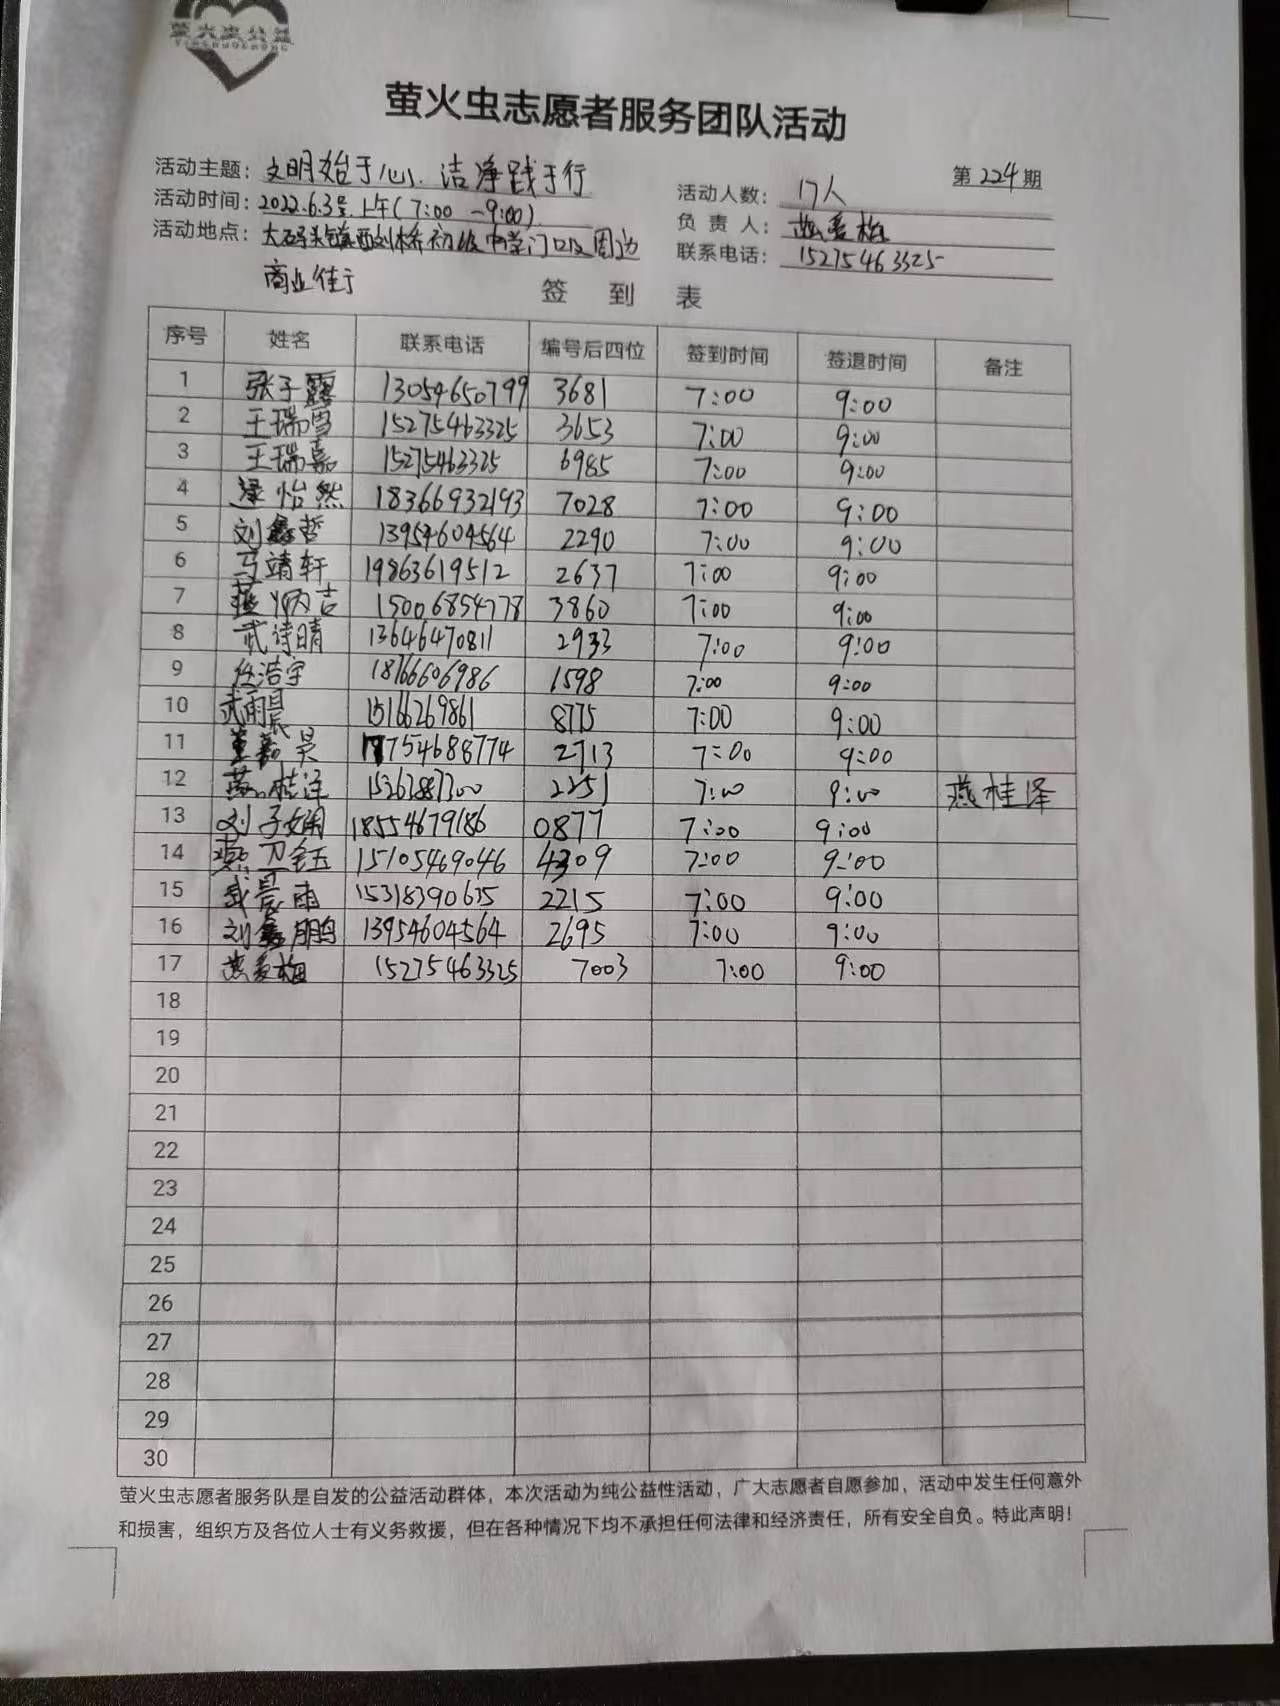 萤火虫公益
YINGHUOCHONG
萤火虫志愿者服务团队活动
第 224 期
活动主题：文明始于心、洁净践于行
活动人数：17人
活动时间：2022.6.3号上午(7:00-9:00)
负责人：燕爱梅
活动地点：大码头镇西刘桥初级中学门口及周边
联系电话：15275463325
商业街于
签到表
序号 姓名 联系电话 编号后四位 签到时间 签退时间 备注
1 张子露 13054650799 3681 7:00 9:00
2 王瑞雪 15275463325 3653 7:00 9:00
3 王瑞嘉 15275463325 6985 7:00 9:00
4 逯怡然 18366932193 7028 7:00 9:00
5 刘鑫哲 13954604564 2290 7:00 9:00
6 马靖轩 19863619512 2637 7:00 9:00
7 燕炳吉 15006854778 3860 7:00 9:00
8 武诗晴 13646470811 2933 7:00 9:00
9 任浩宇 18766606986 1598 7:00 9:00
10 武雨晨 15166269861 8775 7:00 9:00
11 董嘉昊 17754688774 2713 7:00 9:00
12 燕桂泽 15263887300 2251 7:00 9:00 燕桂泽
13 刘子娴 18554679186 0877 7:00 9:00
14 15105469046 4309 7:00 9:00
15 武晨雨 15318390635 2215 7:00 9:00
16 刘鑫鹏 13954604564 2695 7:00 9:00
17 燕爱梅 15275463325 7003 7:00 9:00
18
19
20
21
22
23
24
25
26
27
28
29
30
萤火虫志愿者服务队是自发的公益活动群体，本次活动为纯公益性活动，广大志愿者自愿参加，活动中发生任何意外
和损害，组织方及各位人士有义务救援，但在各种情况下均不承担任何法律和经济责任，所有安全自负。特此声明！